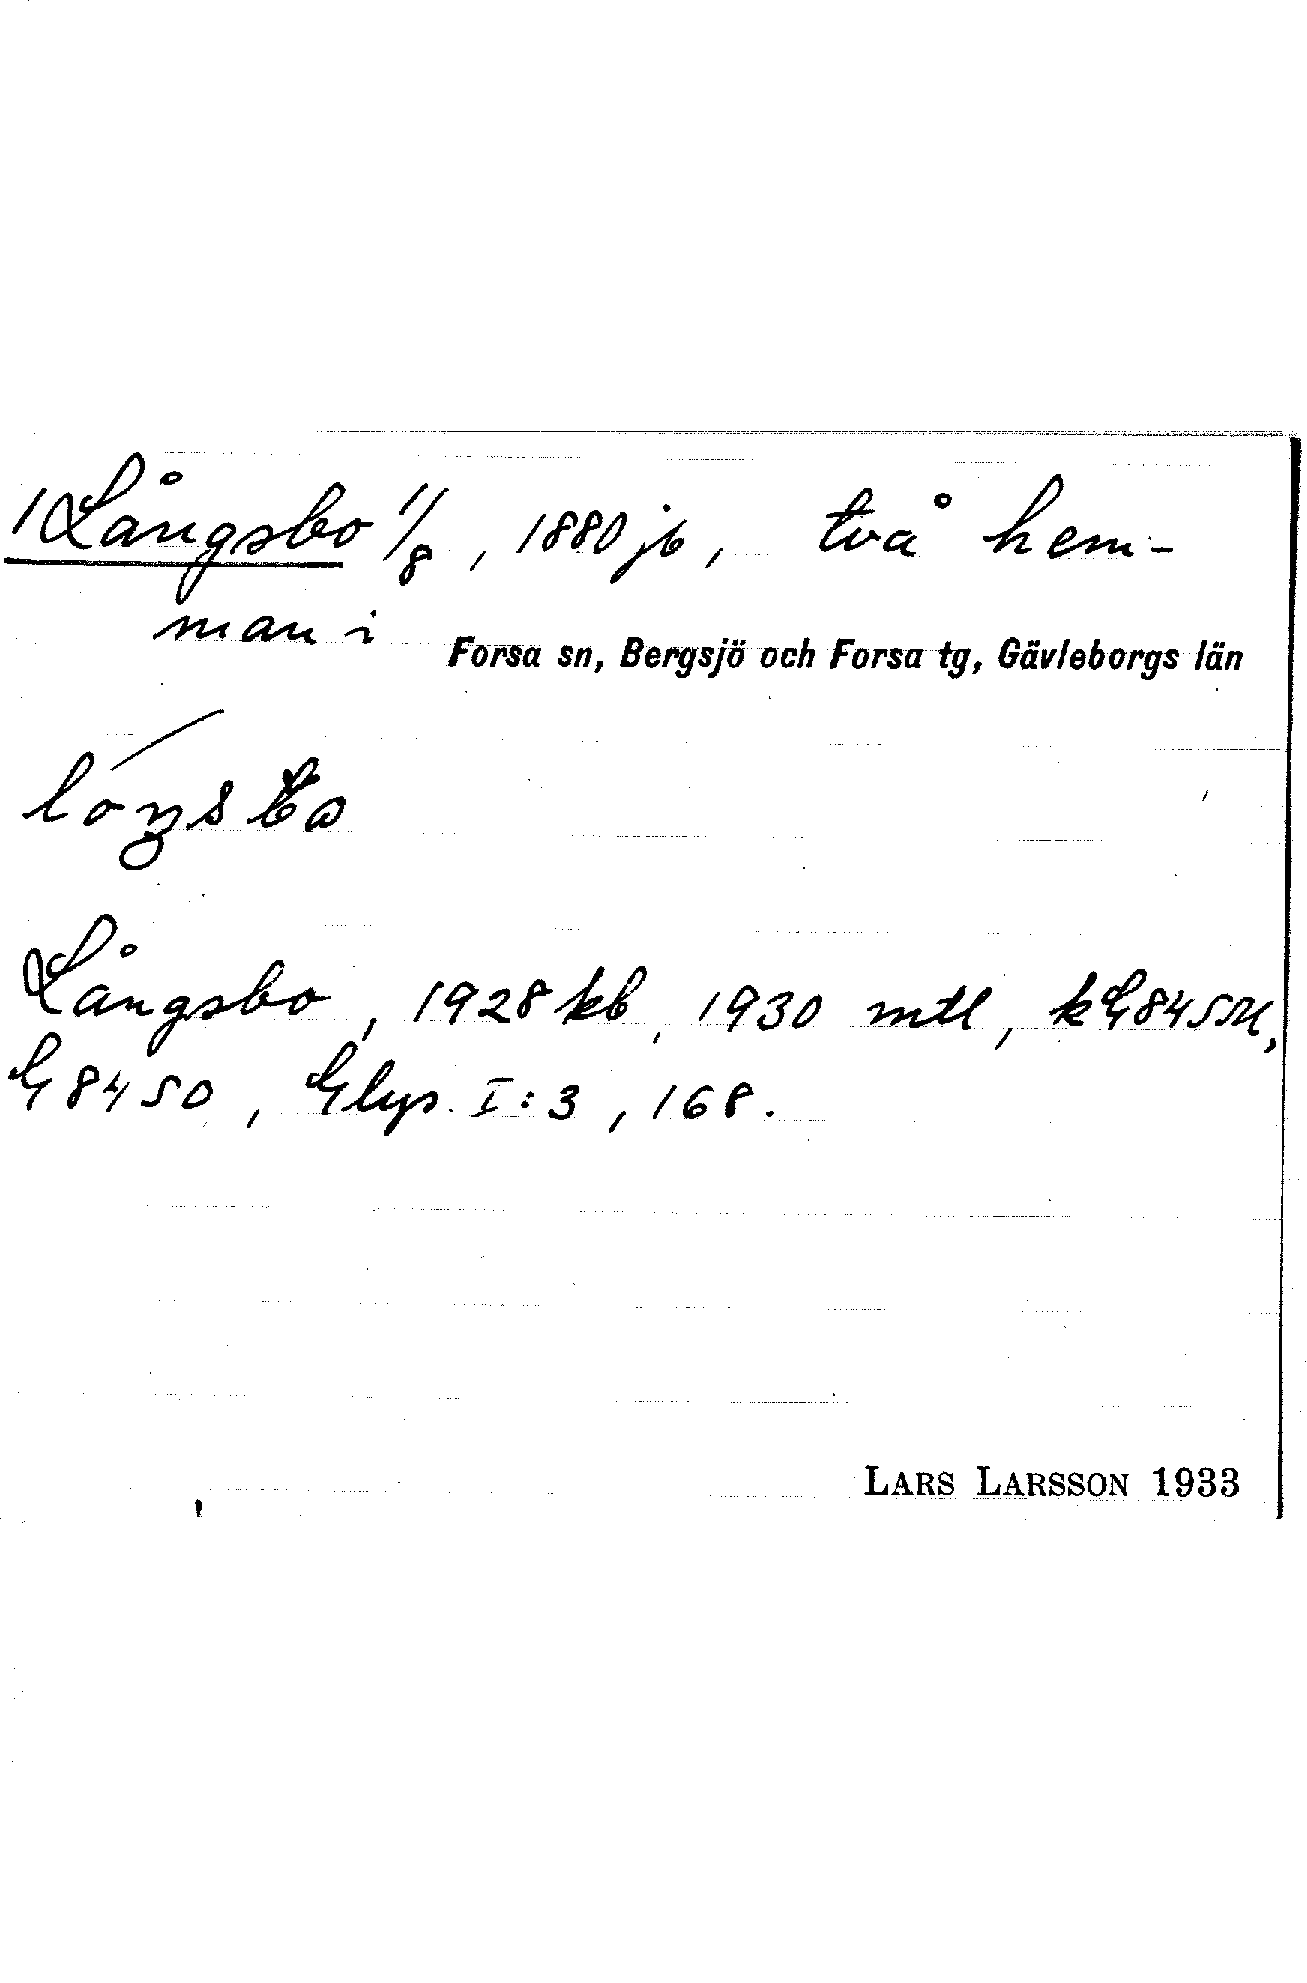 1 Långsbo 1/8, 1880 jb, två hem-
man i Forsa sn, Bergsjö och Forsa tg, Gävleborgs län
Långsbo, 1928 kb, 1930 mtl, kG845M,
G8450, Glys. I:3, 168.
LARS LARSSON 1933